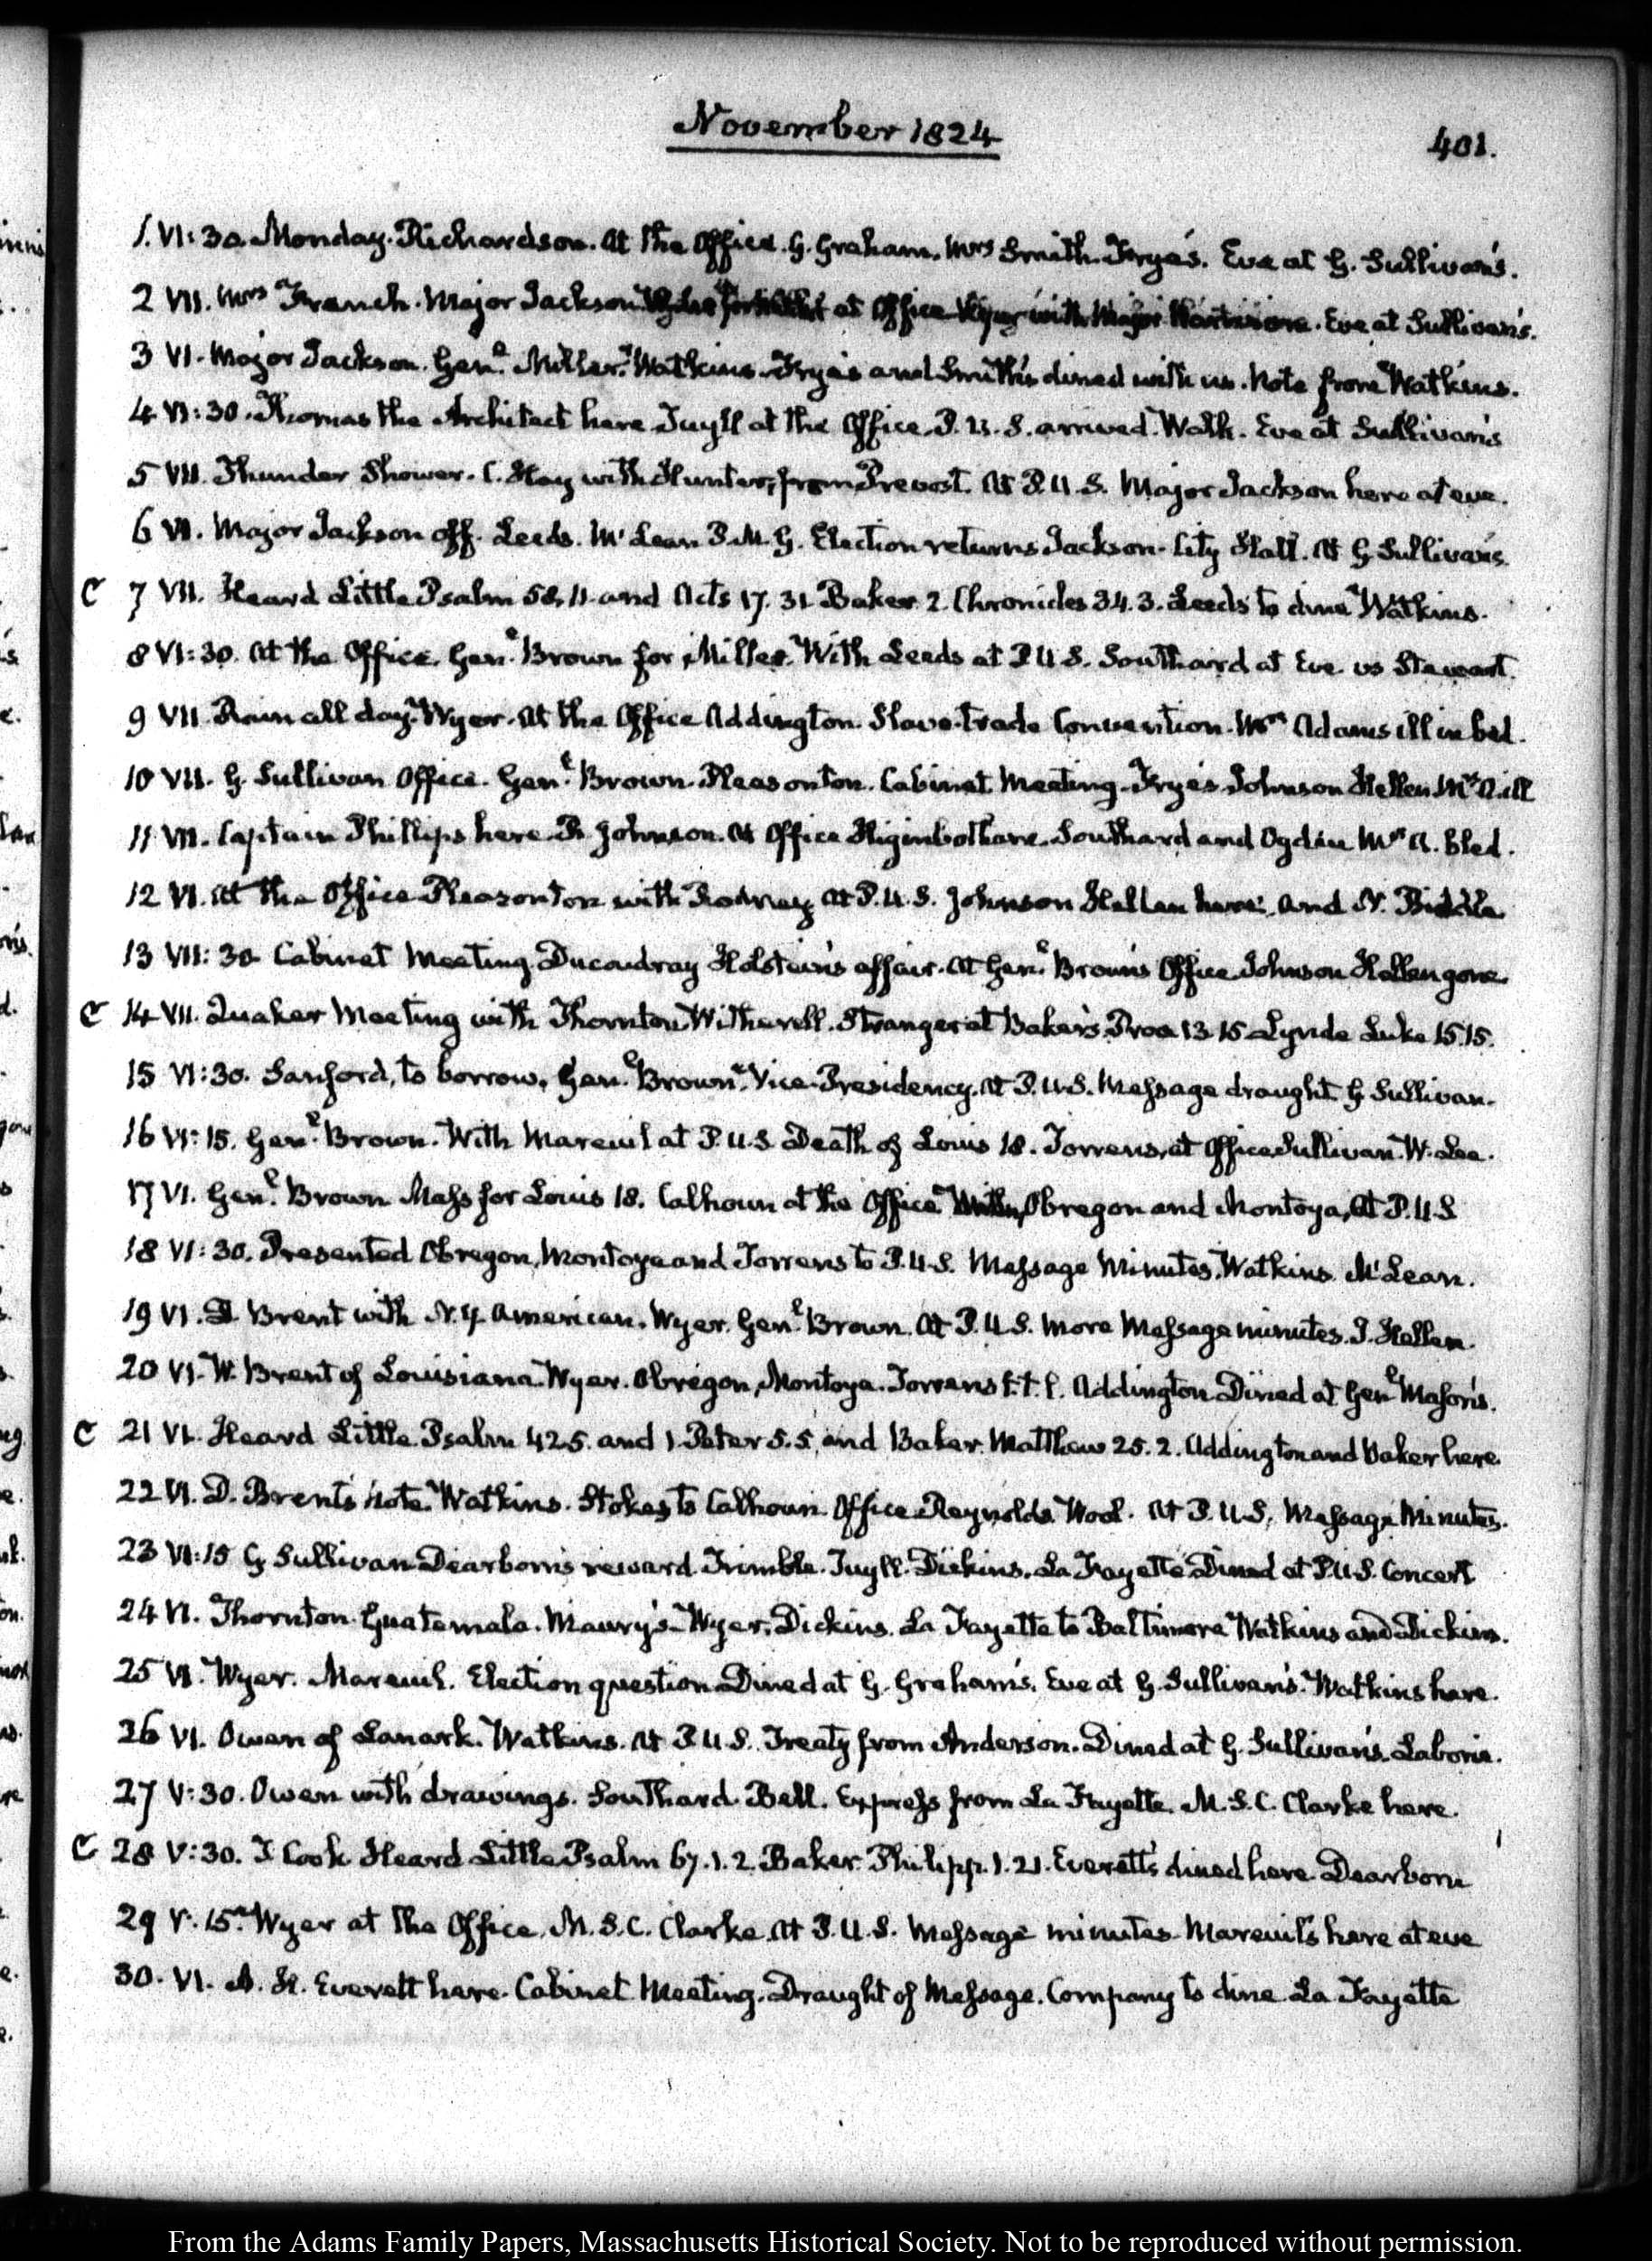 November 1824
401.
1. VI:30. Monday. Richardson. At the Office. G. Graham. Mrs Smith. Frye's. Eve at G. Sullivan's.
2 VII. Mrs French. Major Jackson at Office Wyer with Major. Eve at Sullivan's.
3 VI. Major Jackson. Genl. Miller. Watkins. Frye's and Smith's dined with us. Note from Watkins.
4 VI:30. Thomas the Architect here Tuyll at the Office. P. U. S. arrived. Walk. Eve at Sullivan's
5 VII. Thunder Shower. C. Hay with Hunter, from Prevost. At P. U. S. Major Jackson here at eve.
6 VI. Major Jackson off. Leeds. McLean P. M. G. Election returns Jackson. City Hall. At G Sullivan's.
C 7 VII. Heard Little Psalm 58. 11. and Acts 17. 31 Baker 2. Chronicles 34. 3. Leeds to dine Watkins.
8 VI:30. At the Office. Genl. Brown for Miller. With Leeds at P. U. S. Southard at Eve. vs Stewart.
9 VII. Rain all day. Wyer. At the Office Addington. Slave-trade Convention. Mrs Adams ill in bed.
10 VII. G. Sullivan Office. Genl. Brown. Pleasonton. Cabinet Meeting. Frye's Johnson Hellen Mrs A. ill
11 VII. Captain Phillips here R. Johnson. At Office Higinbotham. Southard and Ogden Mrs A. bled.
12 VI. At the Office Pleasonton with Rodney At P. U. S. Johnson Hellen here. and N. Biddle
13 VII:30 Cabinet Meeting. Ducoudray Holstein's affair. At Genl. Brown's Office Johnson Hellen gone.
C 14 VII. Quaker Meeting with Thornton Witherell. Stranger at Baker's Prov 13 15 Lynde Luke 15.15.
15 VI:30. Sanford, to borrow, Genl. Brown. Vice-Presidency. At P. U. S. Message draught G Sullivan.
16 VI:15. Genl. Brown. With Mareuil at P. U. S Death of Louis 18. Torrens, at Office Sullivan. W. Lee.
17 VI. Genl. Brown Mass for Louis 18. Calhoun at the Office Obregon and Montoya, At P. U. S
18 VI:30. Presented Obregon, Montoya and Torrens to P. U. S. Message Minutes. Watkins McLean.
19 VI. D. Brent with N. Y. American. Wyer. Genl. Brown. At P. U. S. more Message minutes. J. Hellen.
20 VI. W. Brent of Louisiana. Wyer. Obregon, Montoya. Torrens t. t. l. Addington Dined at Genl Mason's.
C 21 VI. Heard Little Psalm 42.5. and 1. Peter 5. 5, and Baker Matthew 25. 2. Addington and Baker here.
22 VI. D. Brent's note. Watkins. Stokes to Calhoun. Office Reynolds Wool. At P. U. S. Message Minutes.
23 VI:15 G Sullivan Dearborn's reward Trimble. Tuyll. Dickins. La Fayette Dined at P. U. S. Concert
24 VI. Thornton. Guatemala. Maury's. Wyer, Dickins. La Fayette to Baltimore Watkins and Dickins.
25 VI. Wyer. Mareuil. Election question Dined at G. Graham's. Eve at G. Sullivan's. Watkins here.
26 VI. Owen of Lanark. Watkins. At P. U. S. Treaty from Anderson. Dined at G. Sullivan's. Laborie.
27 V:30. Owen with drawings. Southard. Bell. Express from La Fayette. M. S. C. Clarke here.
C 28 V:30. J Cook Heard Little Psalm 67. 1. 2. Baker. Philipp. 1. 21. Everett's dined here. Dearborn
29 V:15. Wyer at the Office. M. S. C. Clarke. At P. U. S. Message minutes Mareuil's here at eve
30. VI. A. H. Everett here. Cabinet Meeting. Draught of Message. Company to dine La Fayette
From the Adams Family Papers, Massachusetts Historical Society. Not to be reproduced without permission.